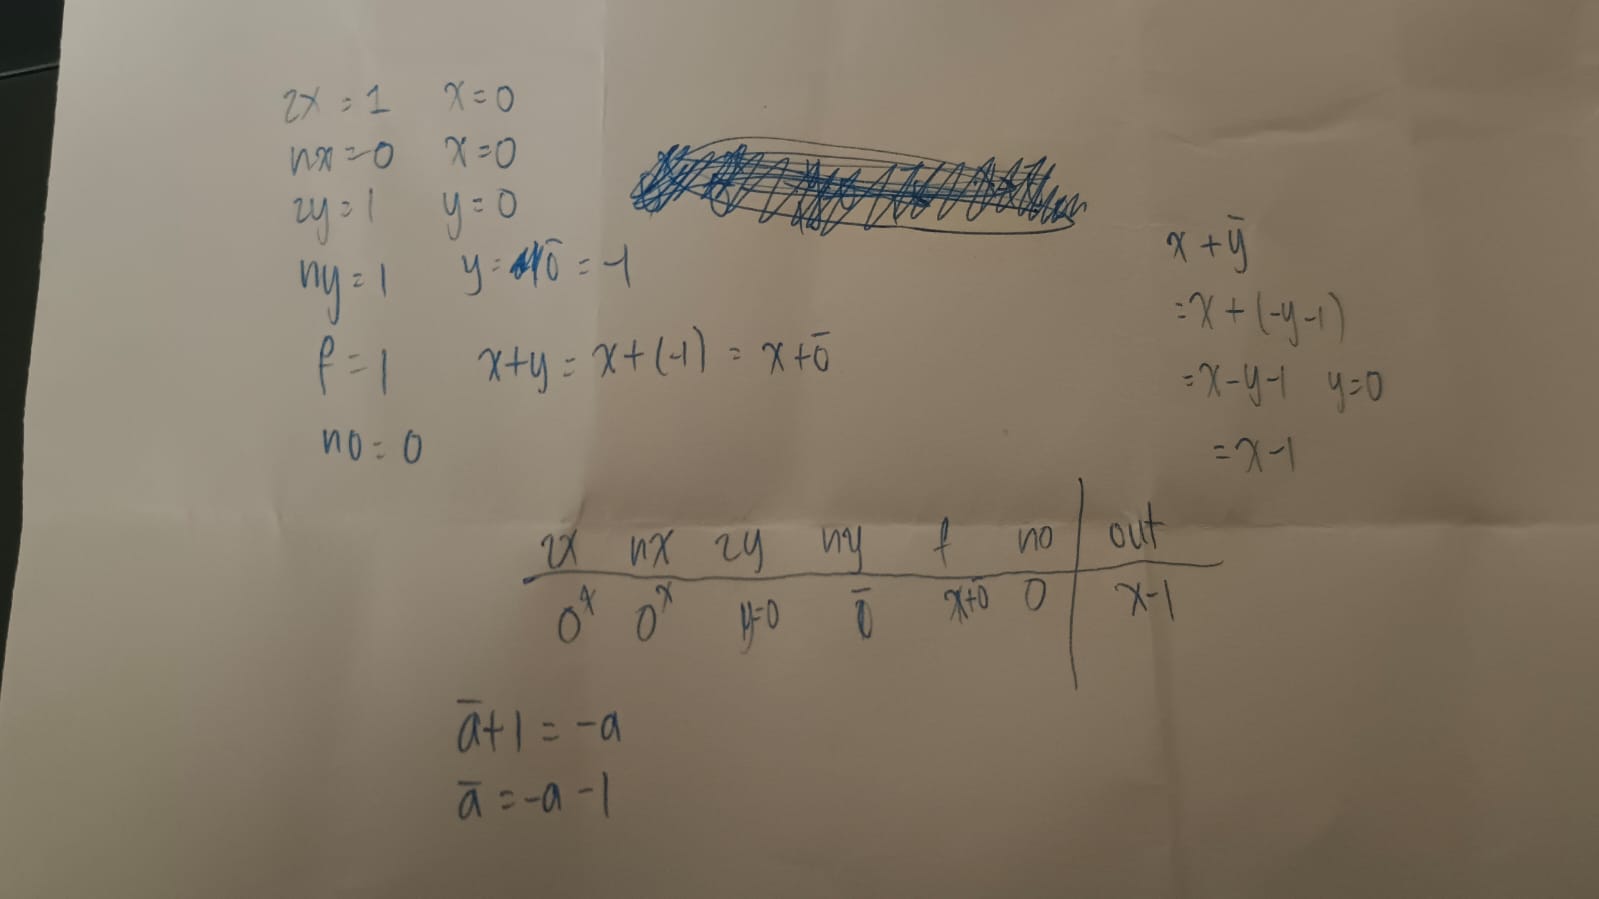 zx = 1 x = 0
nx = 0 x = 0
zy = 1 y = 0
ny = 1 y = 0̄ = -1
f = 1 x+y = x+(-1) = x+0̄
no = 0
x + ȳ
= x + (-y-1)
= x-y-1 y=0
= x-1
zx nx zy ny f no out
0ˣ 0ˣ y=0 0̄ x+0̄ 0 x-1
ā+1 = -a
ā = -a -1